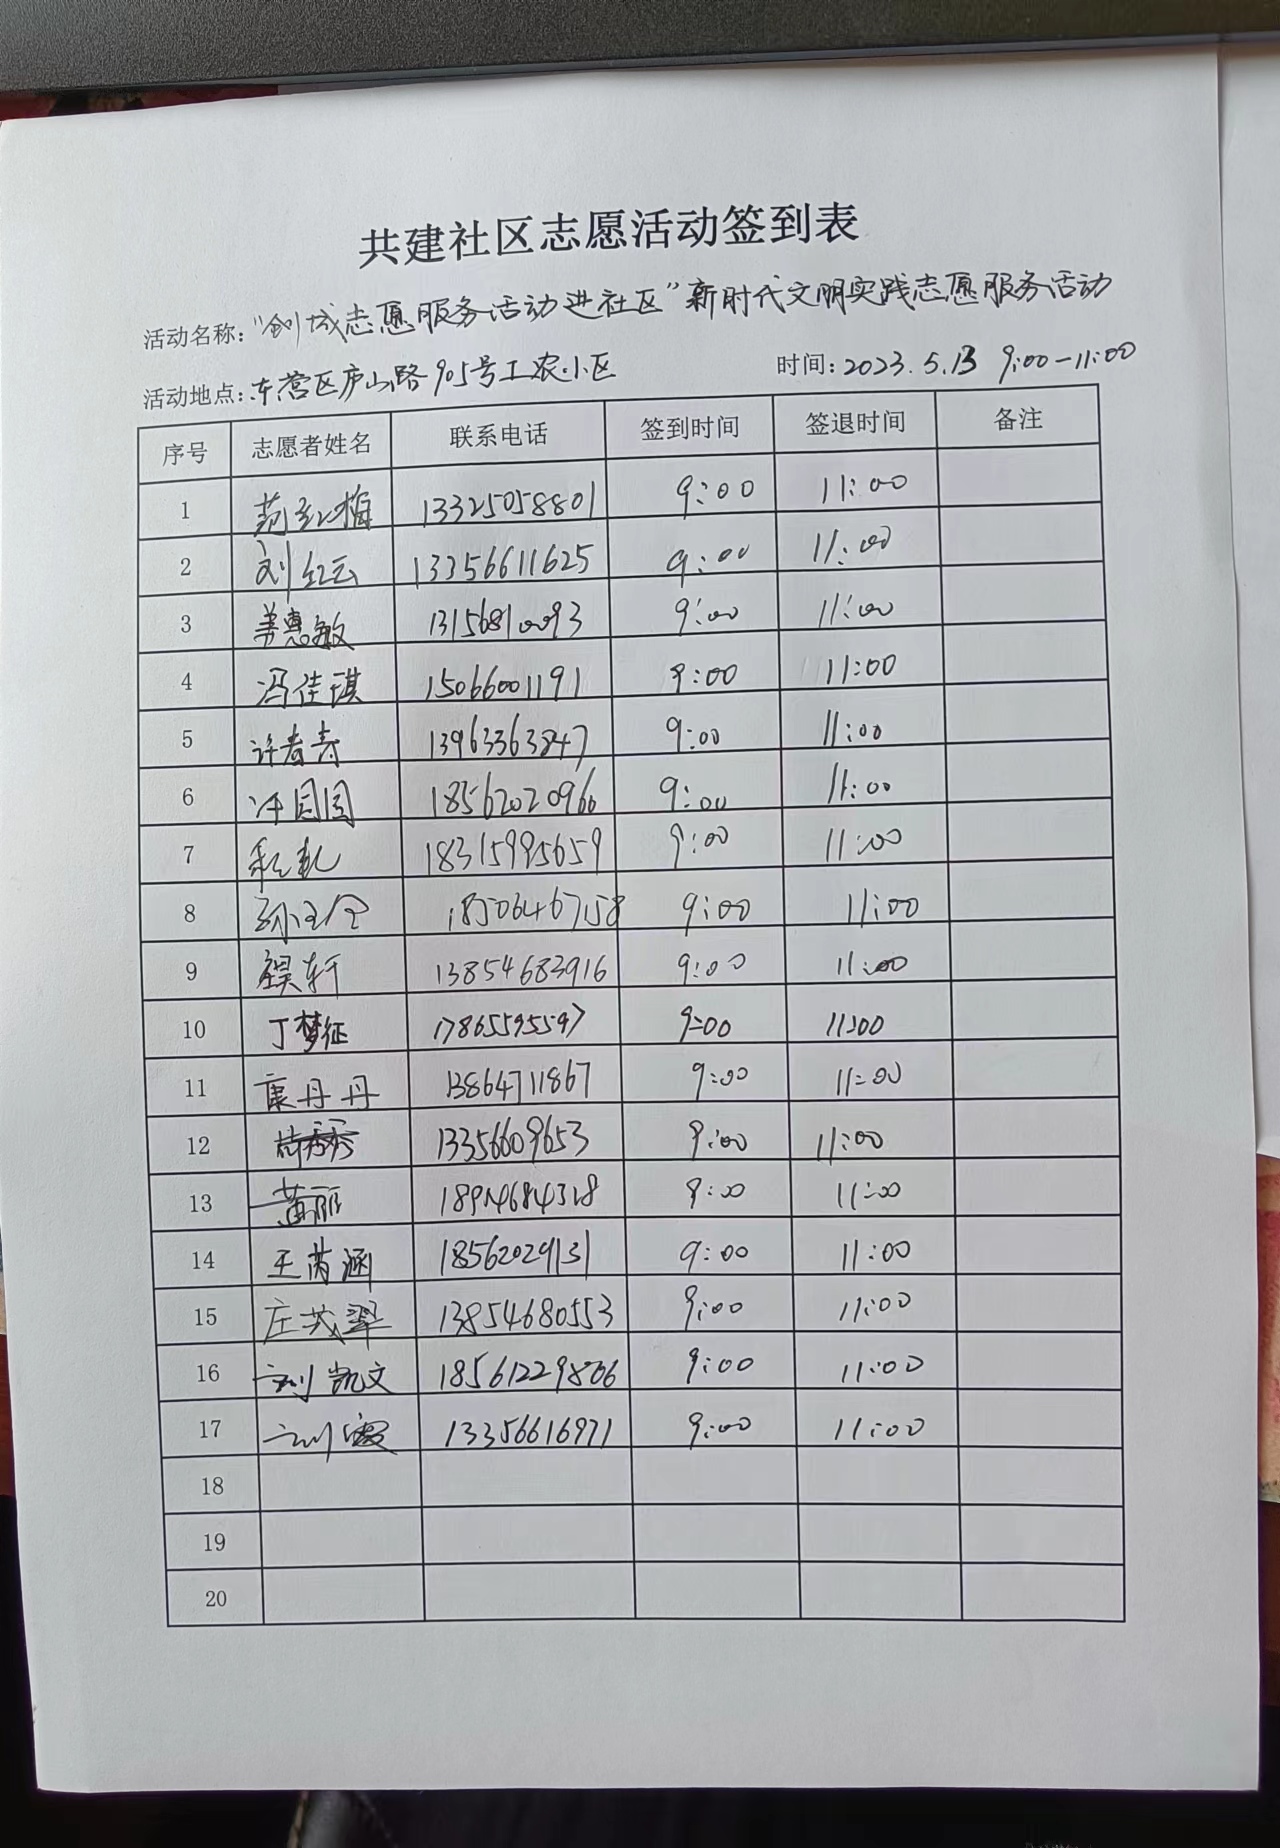 共建社区志愿活动签到表
活动名称："创城志愿服务活动进社区"新时代文明实践志愿服务活动
活动地点：东营区庐山路905号工农小区 时间：2023.5.13 9:00-11:00
序号 志愿者姓名 联系电话 签到时间 签退时间 备注
1 范红梅 13325058801 9:00 11:00
2 刘红云 13356611625 9:00 11:00
3 姜惠敏 13156810093 9:00 11:00
4 冯佳琪 15066001191 9:00 11:00
5 许春寿 13963363847 9:00 11:00
6 许园园 18562020960 9:00 11:00
7 18315995659 9:00 11:00
8 18506467158 9:00 11:00
9 轩 13854683916 9:00 11:00
10 丁梦征 17865595597 9:00 11:00
11 康丹丹 13864711867 9:00 11:00
12 13356609653 9:00 11:00
13 黄丽 9:00 11:00
14 王芮涵 18562029131 9:00 11:00
15 庄茂翠 13854680553 9:00 11:00
16 刘凯文 18561229806 9:00 11:00
17 刘霞 13356616971 9:00 11:00
18
19
20